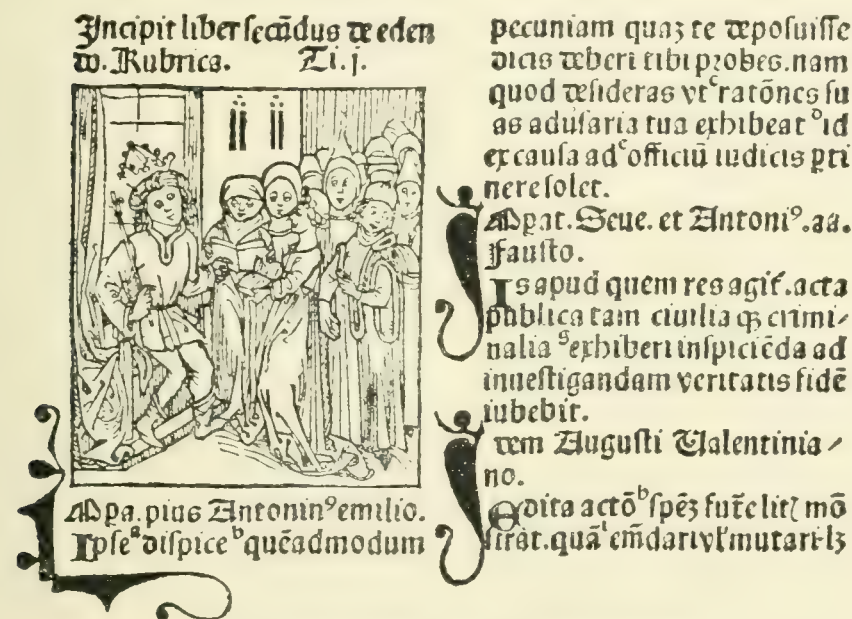 Incipit liber secūdus de eden
do. Rubrica. Ti. j.
Mpa. pius Antoninꝰ emilio.
Ipse ᵃdispice ᵇquēadmodum
pecuniam quaʒ te deposuisse
dicis deberi tibi probes. nam
quod desideras vt ᶜratōnes su
as aduſaria tua exhibeat ᵈid
ex causa ad ᵉofficiū iudicis ꝑti
nere solet.
Mpat. Seue. et Antoniꝰ. aa.
Fausto.
Is apud quem res agit᷑. acta
publica tam ciuilia qꝫ crimi⸗
nalia ᵍexhiberi inspiciēda ad
inuestigandam veritatis fidē
iubebit.
tem Augusti Valentinia⸗
no.
Edita actō ᵇspēʒ futē litꝭ mō
strat. quā emēdari vl̓ mutari lʒ